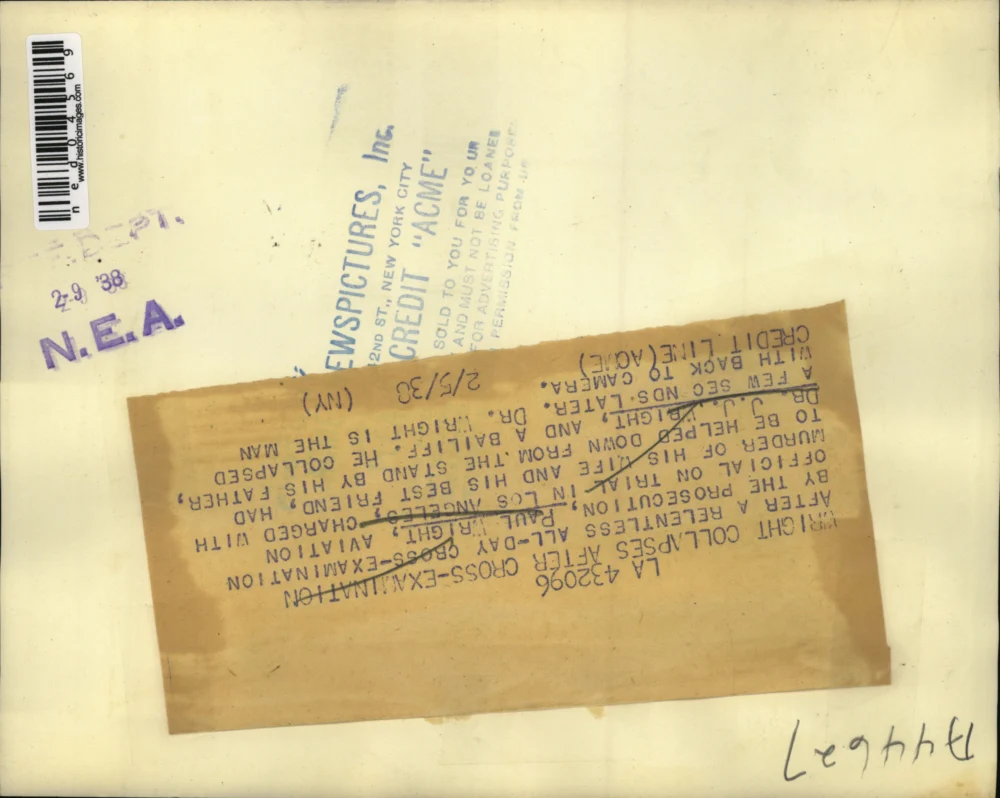 LA 432096
WRIGHT COLLAPSES AFTER CROSS-EXAMINATION
AFTER A RELENTLESS ALL-DAY CROSS-EXAMINATION
BY THE PROSECUTION, PAUL WRIGHT, AVIATION
OFFICIAL ON TRIAL IN LOS ANGELES, CHARGED WITH
MURDER OF HIS WIFE AND HIS BEST FRIEND, HAD
TO BE HELPED DOWN FROM THE STAND BY HIS FATHER,
DR. J.J. WRIGHT, AND A BAILIFF. HE COLLAPSED
A FEW SEC NDS LATER. DR. WRIGHT IS THE MAN
WITH BACK TO CAMERA.
CREDIT LINE (ACME) 2/5/38 (NY)
EWSPICTURES, Inc.
2ND ST., NEW YORK CITY
CREDIT "ACME"
SOLD TO YOU FOR YOUR
AND MUST NOT BE LOANED
FOR ADVERTISING PURPOSE
PERMISSION FROM
DEPT.
2-9 '38
N.E.A.
ned045669
www.historicimages.com
A44627